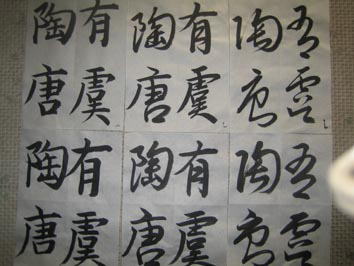 有虞
陶唐
有虞
陶唐
有虞
陶唐
有虞
陶唐
有虞
陶唐
有虞
陶唐